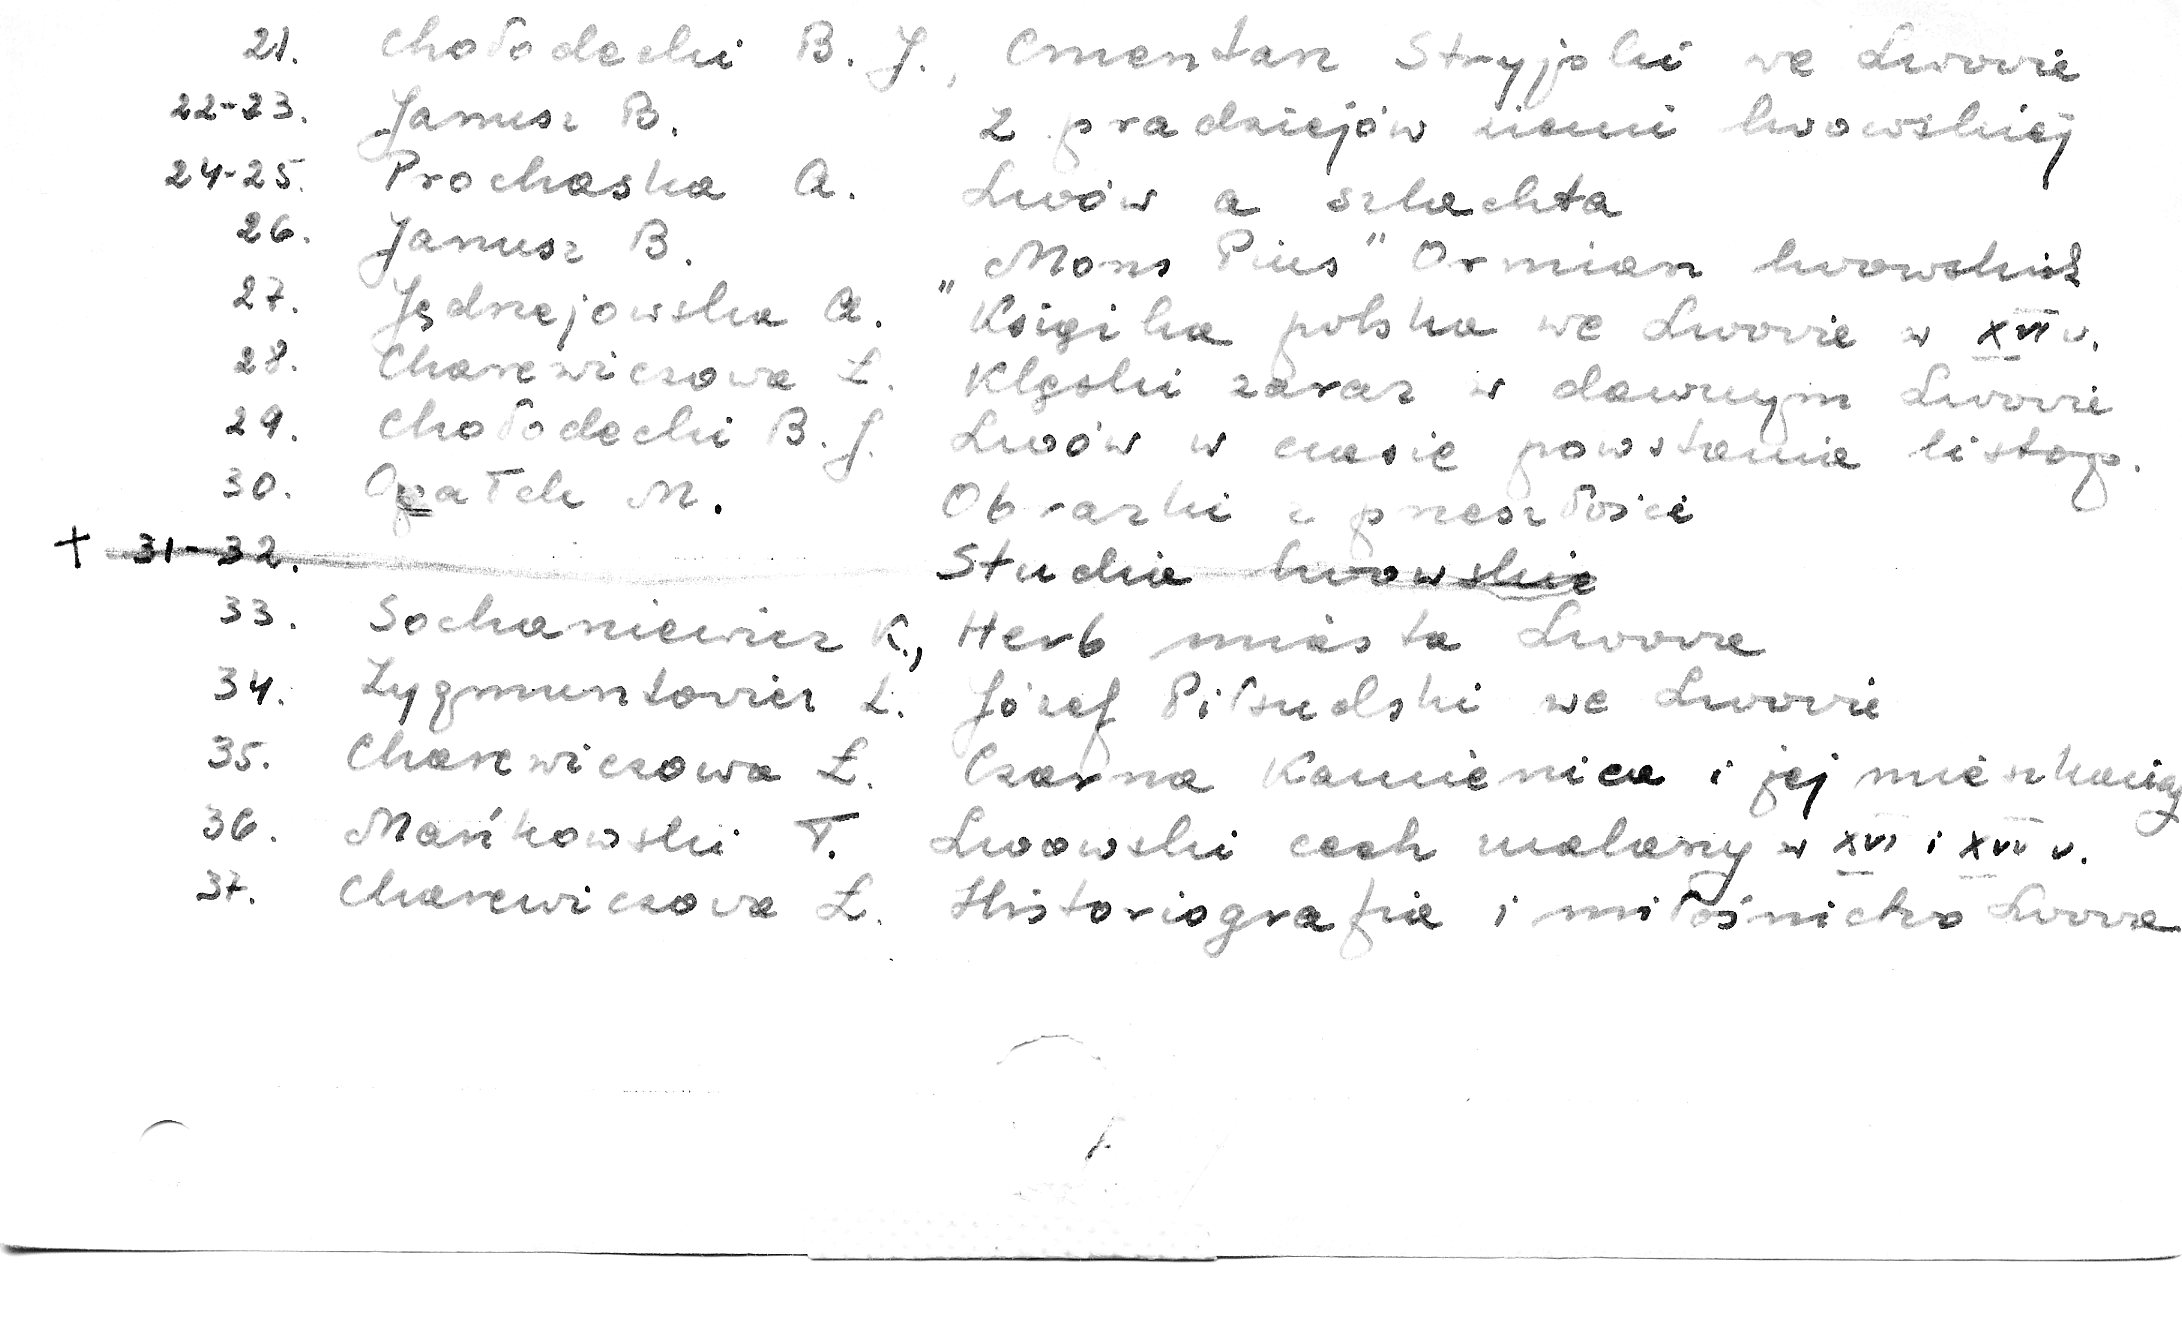 21. Chołodecki B. J., Cmentarz Stryjski we Lwowie
22-23. Janusz B. Z pradziejów ziemi lwowskiej
24-25. Prochaska A. Lwów a szlachta
26. Janusz B. „Mons Pius" Ormian lwowskich
27. Jędrzejowska A. Książka polska we Lwowie w XVI w.
28. Charewiczowa Ł. Klęski zaraz w dawnym Lwowie
29. Chołodecki B. J. Lwów w czasie powstania listop.
30. Opałek M. Obrazki z przeszłości
+ 31-32. Studia lwowskie
33. Sochaniewicz K., Herb miasta Lwowa
34. Zygmuntowicz Z. Józef Piłsudski we Lwowie
35. Charewiczowa Ł. Czarna Kamienica i jej mieszkańcy
36. Mańkowski T. Lwowski cech malarzy w XVI i XVII w.
37. Charewiczowa Ł. Historiografia i miłośnictwo Lwowa